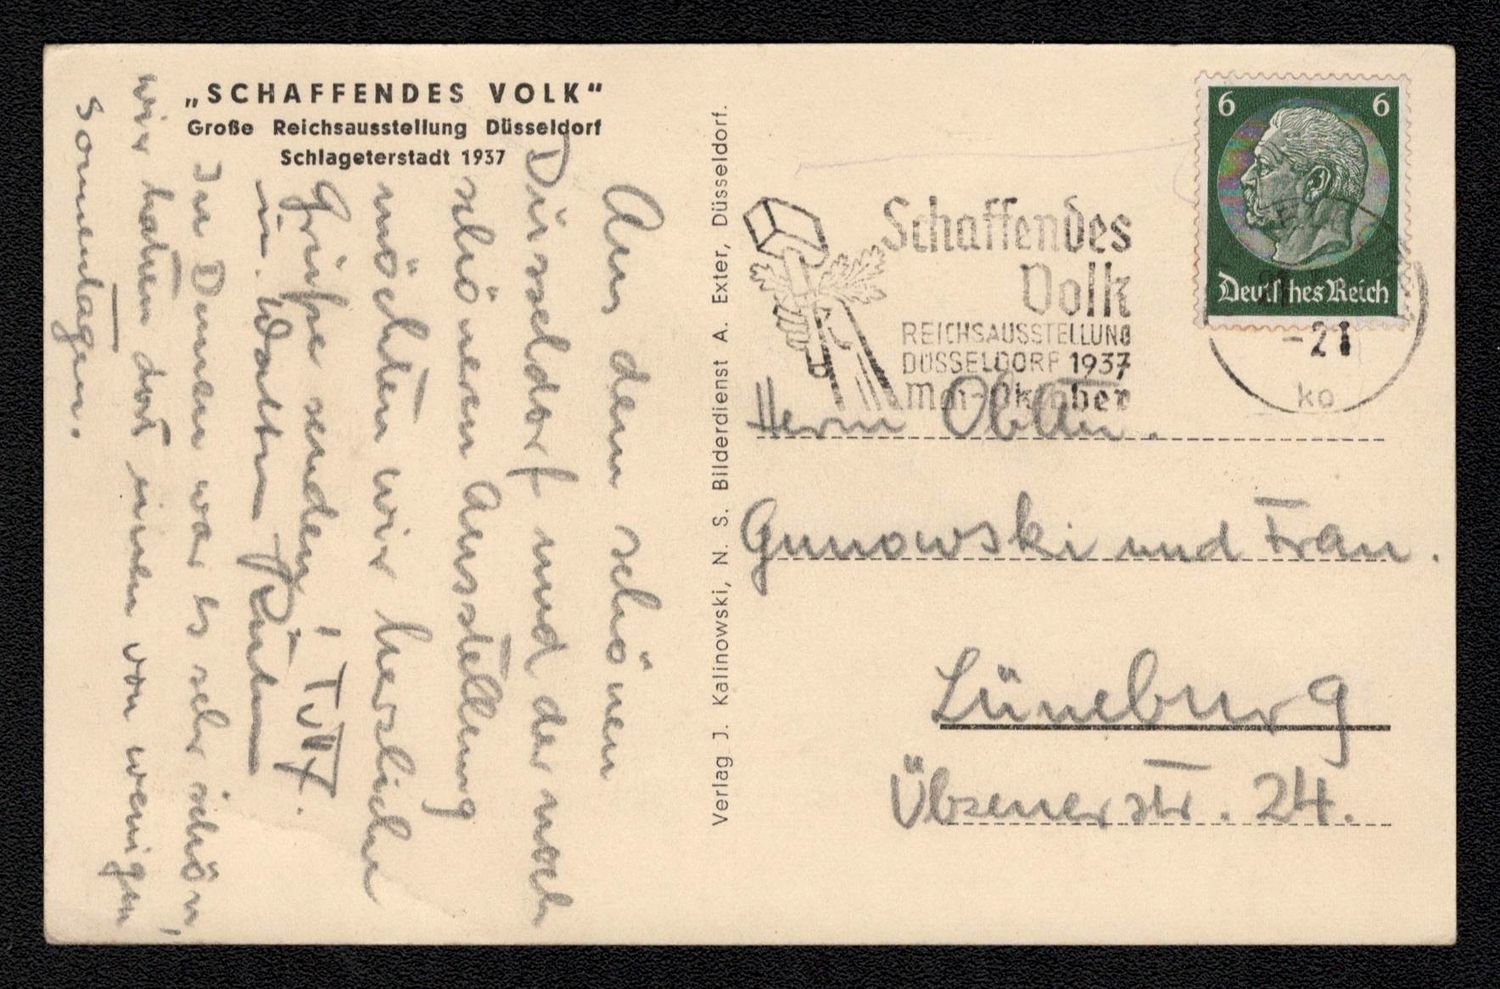 „SCHAFFENDES VOLK“
Große Reichsausstellung Düsseldorf
Schlageterstadt 1937
Aus dem schönen
Düsseldorf und der noch
schöneren Ausstellung
möchten wir herzliche
Grüße senden!
u.
In Dumen war es sehr schön,
wir hatten dort einen von wenigen
Sonnentagen.
Verlag J. Kalinowski, N. S. Bilderdienst A. Exter, Düsseldorf.
Schaffendes
Volk
REICHSAUSSTELLUNG
DÜSSELDORF 1937
Mai-Oktober
6 6
Deutsches Reich
-21
ko
Herrn
Gunowski und Frau.
Lüneburg
Übzenerstr. 24.